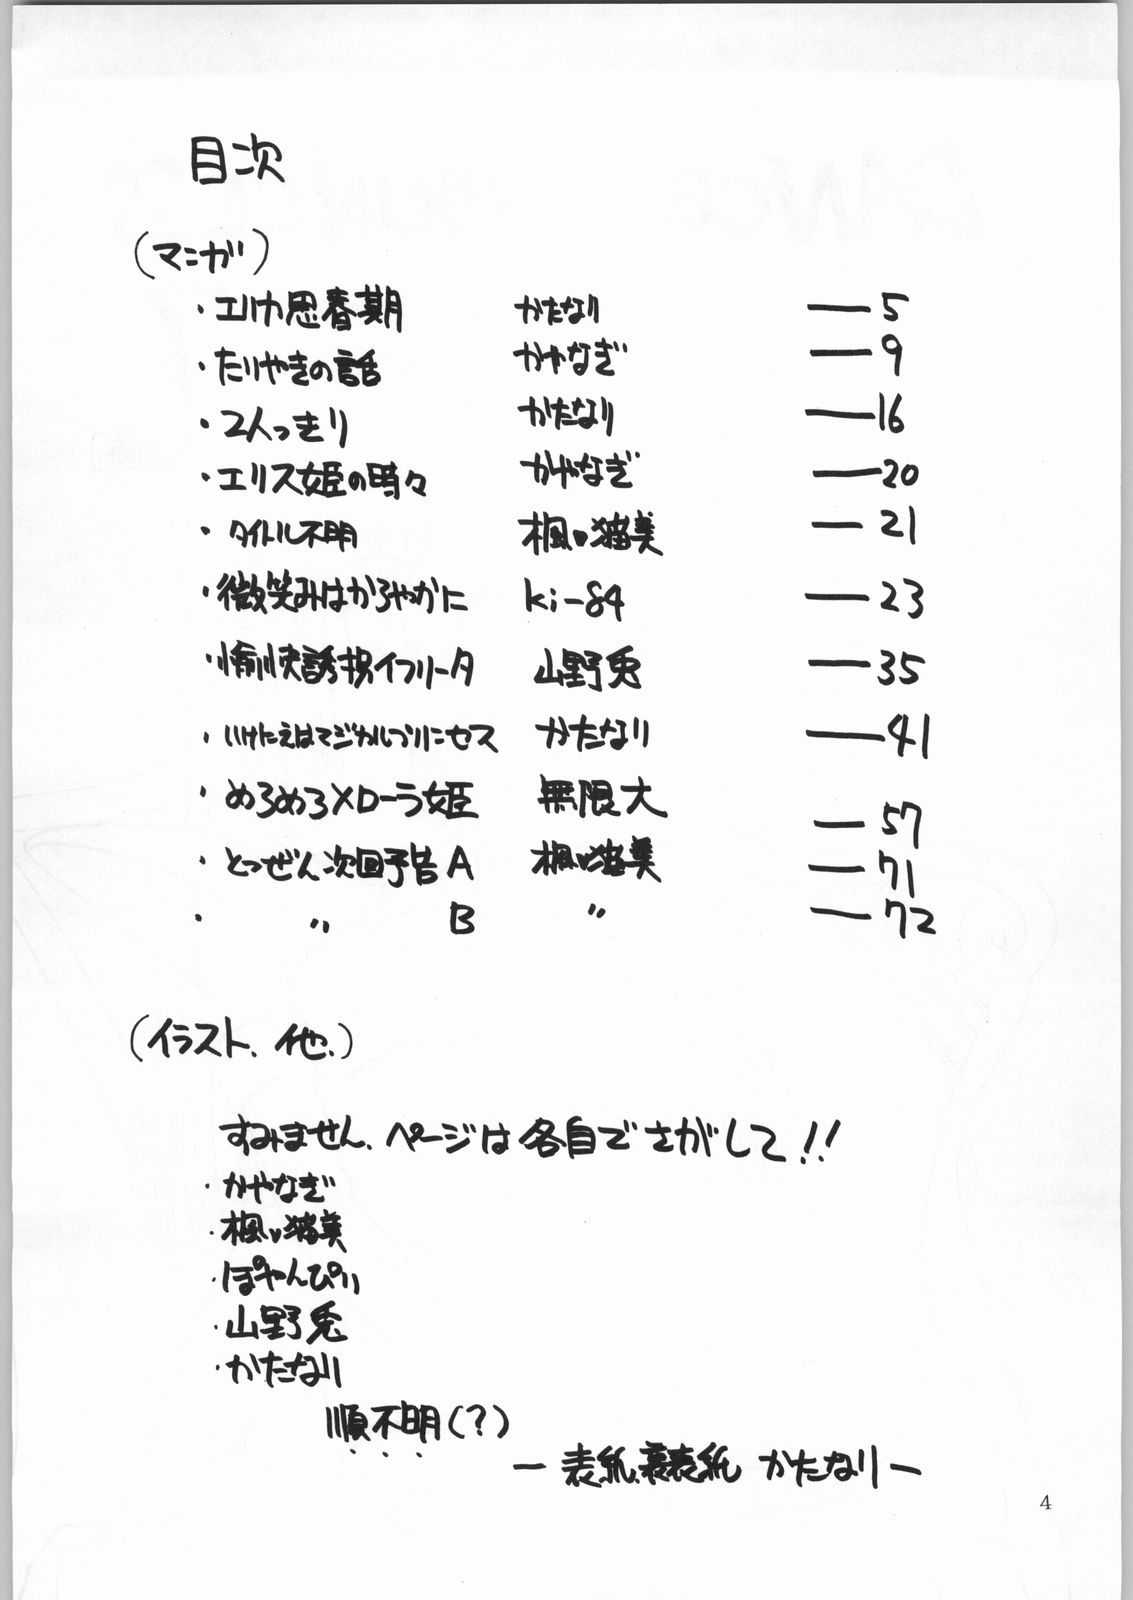 目次
(マンガ)
・エリカ思春期 かたなり ―5
・たりやきの話 かやなぎ ―9
・2人っきり かたなり ―16
・エリス姫の時々 かやなぎ ―20
・タイトル不明 楓い猫美 ―21
・微笑みはかろやかに ki-84 ―23
・愉快誘拐イフリータ 山野兎 ―35
・いけにえはマジカルプリンセス かたなり ―41
・めろめろ×ローラ姫 無限大 ―57
・とつぜん次回予告A 楓い猫美 ―71
・〃 B 〃 ―72
(イラスト、他、)
すみません、ページは各自でさがして!!
・かやなぎ
・楓い猫美
・ぽやんぴぃ
・山野兎
・かたなり
順不明(?)
―表紙、裏表紙 かたなり―
4